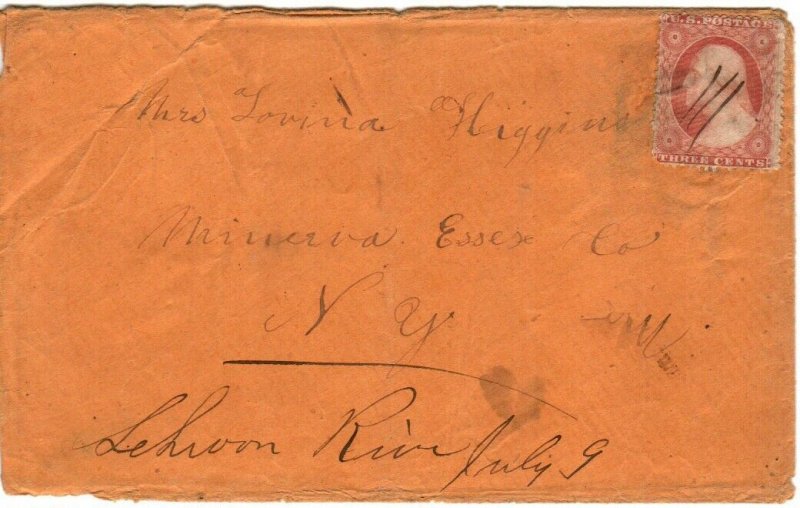 U.S. POSTAGE
Mrs Lovina Higgins
Minerva Essex Co
N Y
Schroon River July 9
THREE CENTS